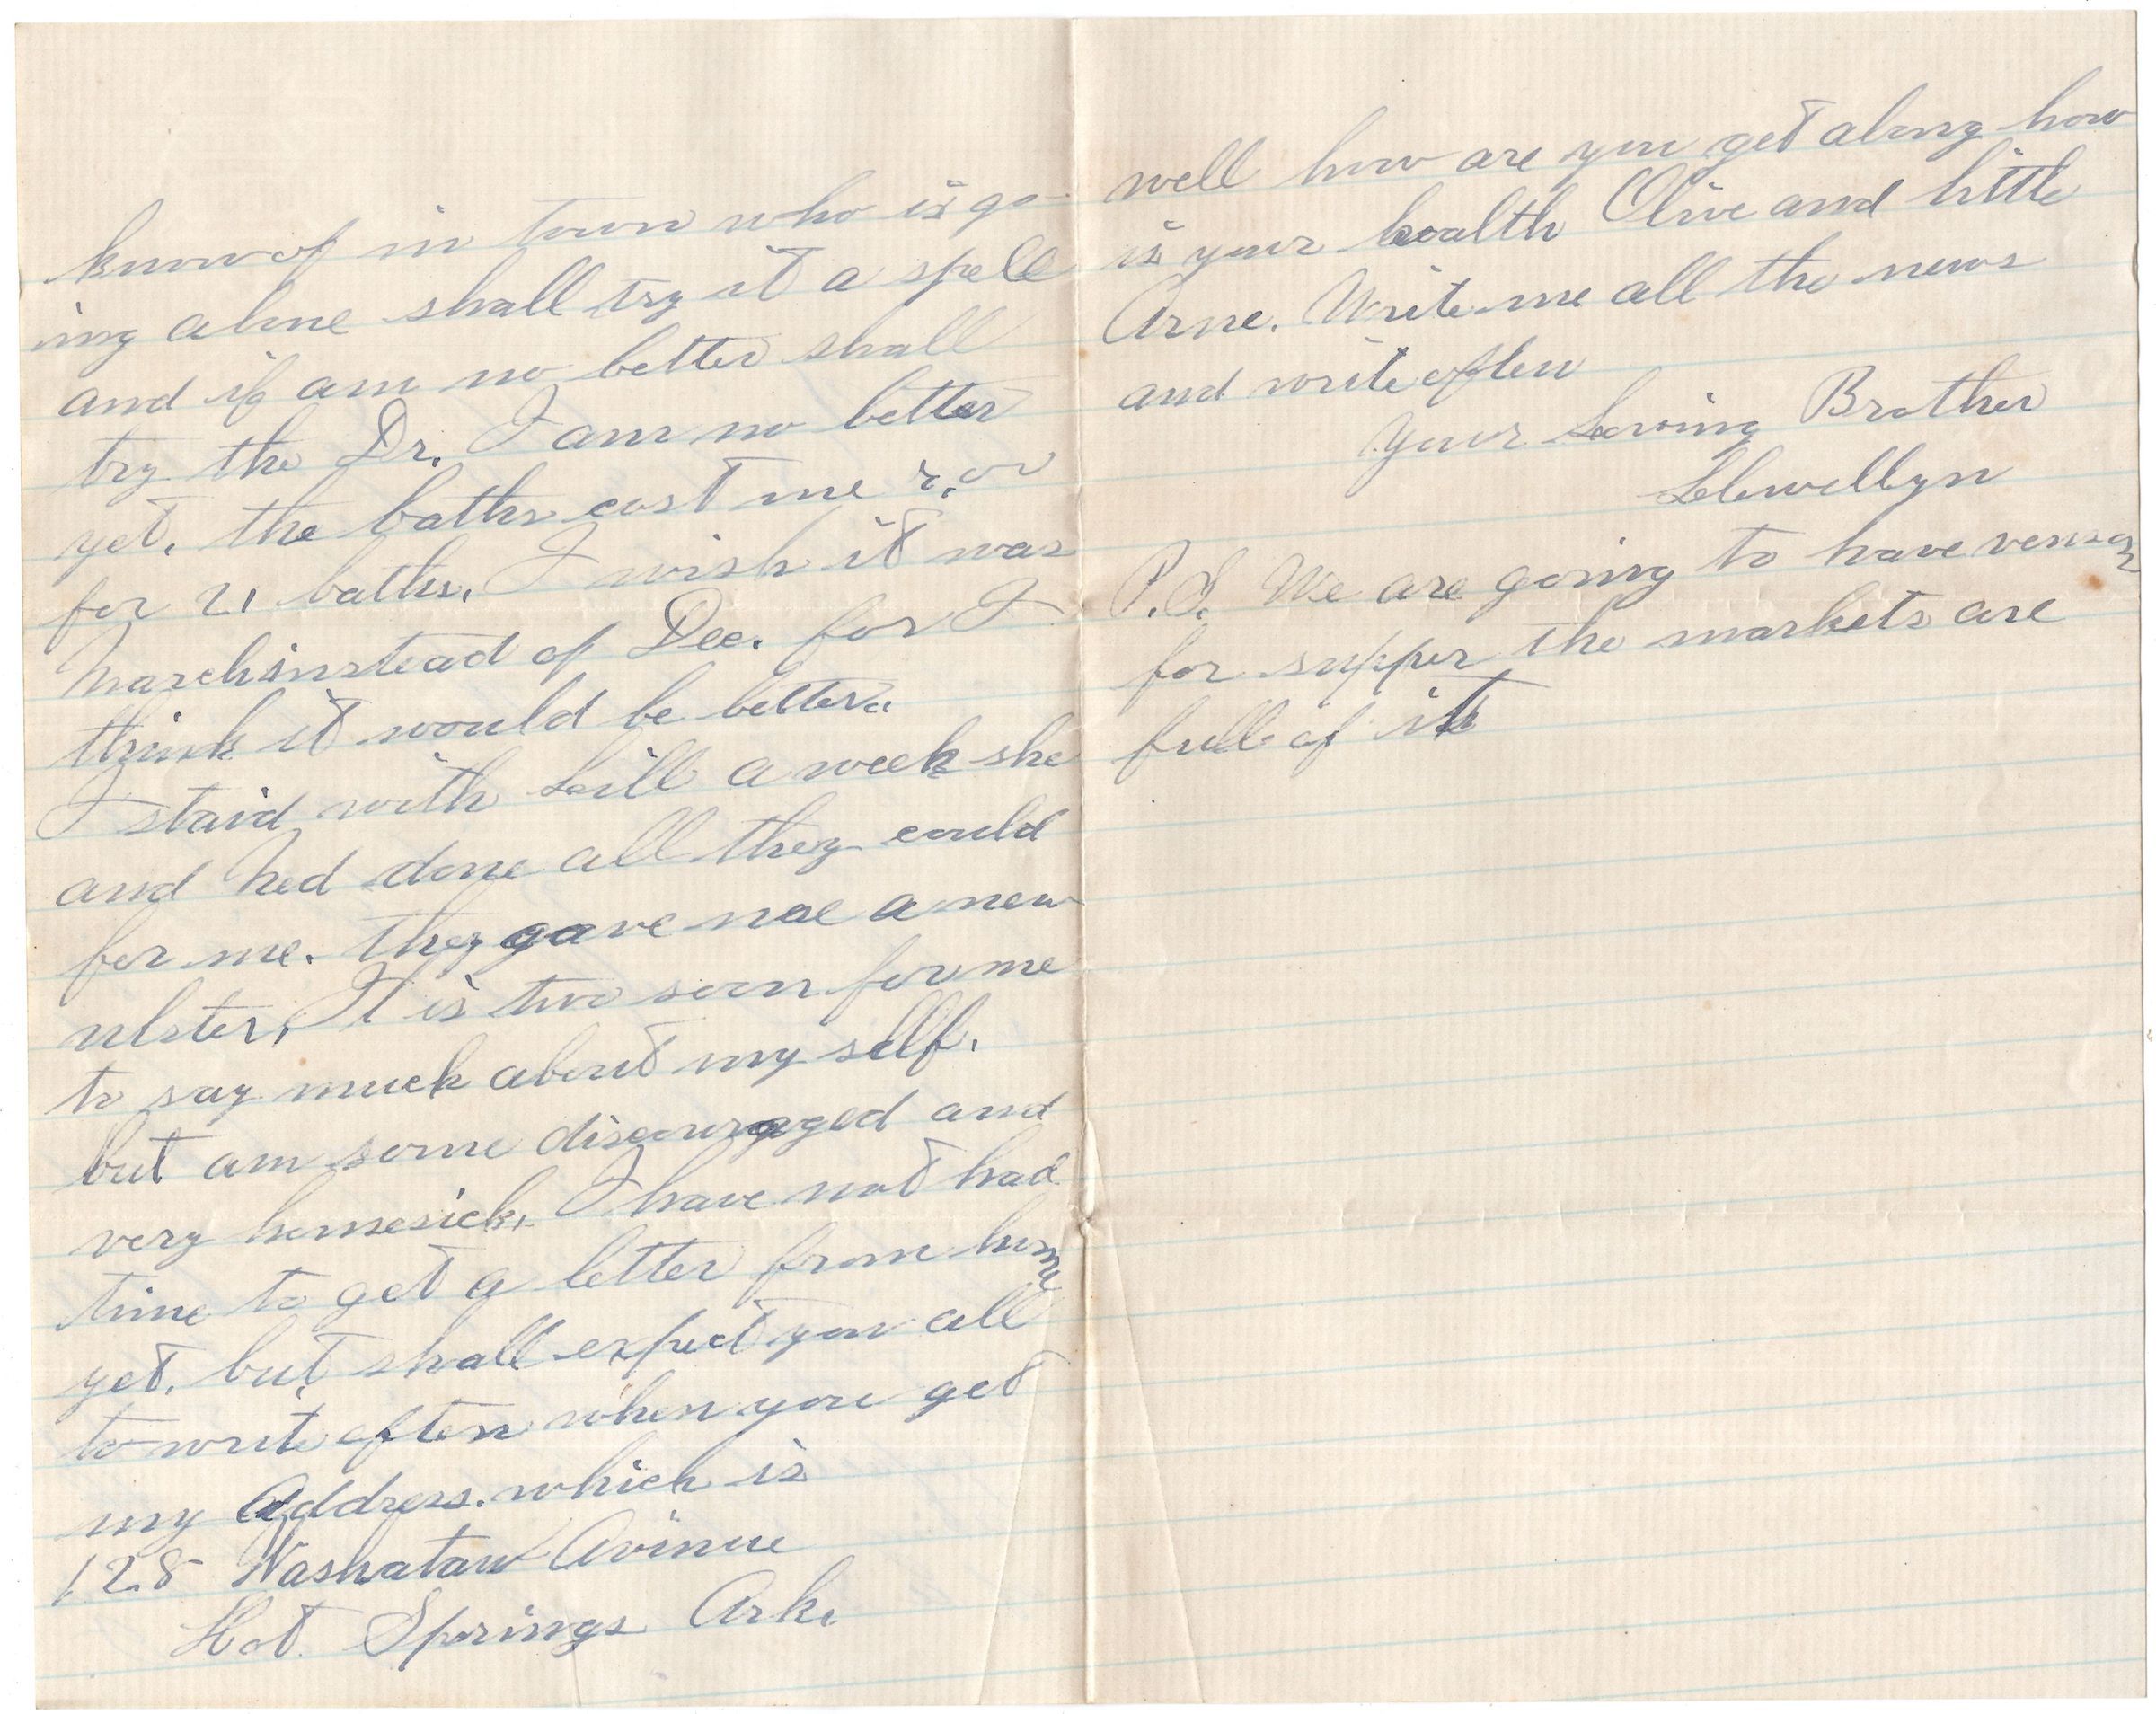 know of in town who is go-
ing alone shall try it a spell
and if am no better shall
try the Dr. I am no better
yet. the baths cost me
for 21 baths. I wish it was
March instead of Dec. for I
think it would be better.
I staid with Lill a week she
and Ned done all they could
for me. they gave me a new
ulster, It is two soon for me
to say much about my self.
but am some discouraged and
very homesick, I have not had
time to get a letter from home
yet. but shall expect you all
to write often when you get
my Address. which is
128 Washataw Avinue
Hot Springs Ark.
well how are you get along how
is your health Olive and little
Arne. Write me all the news
and write often
Your Loving Brother
Llewellyn
P.S. We are going to have venson
for supper the markets are
full of it